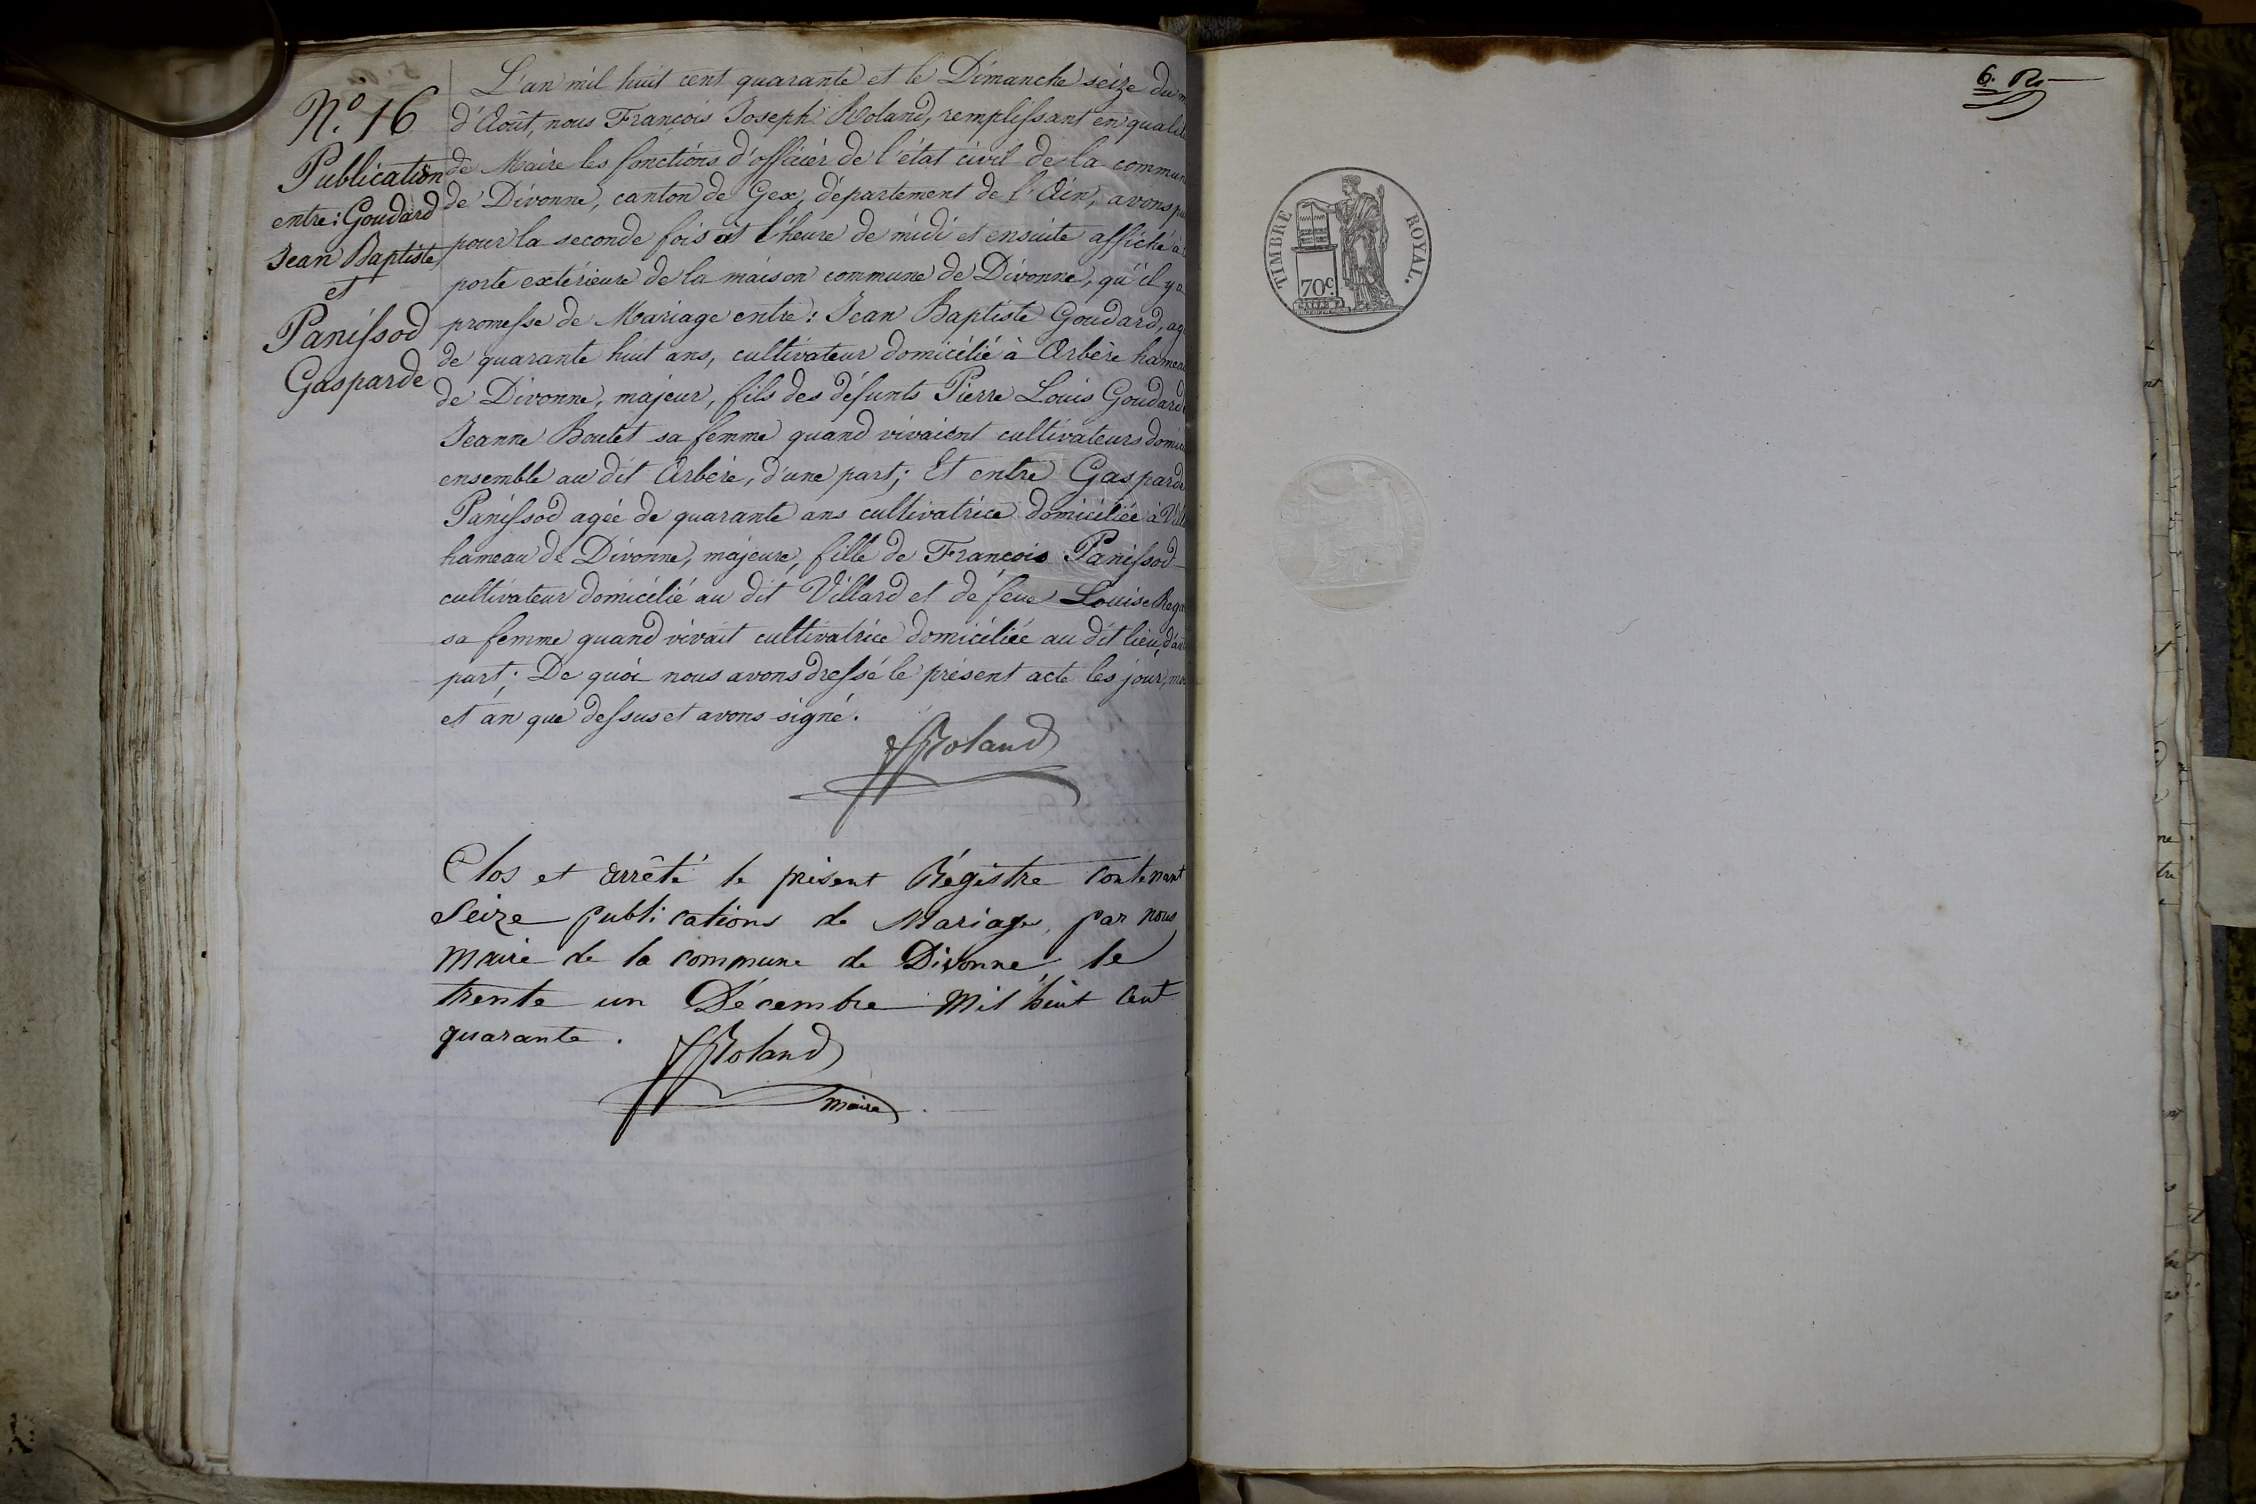 N.º 16
Publication
entre: Goudard
Jean Baptiste
et
Panissod
Gasparde
L'an mil huit cent quarante et le Dimanche seize du
d'Août, nous François Joseph Roland, remplissant en qualité
de Maire les fonctions d'officier de l'état civil de la commun
de Divonne, canton de Gex, département de l'Ain, avons pu
pour la seconde fois et l'heure de midi et ensuite affiché à
porte extérieure de la maison commune de Divonne, qu'il y a
promesse de Mariage entre: Jean Baptiste Goudard, ag
de quarante huit ans, cultivateur domicilié à Arbère hamea
de Divonne, majeur, fils des défunts Pierre Louis Goudard
Jeanne Boutet sa femme quand vivaient cultivateurs domici
ensemble au dit Arbère, d'une part; Et entre Gasparde
Panissod agée de quarante ans cultivatrice domiciliée à Vill
hameau de Divonne, majeure, fille de François Panissod
cultivateur domicilié au dit Villard et de feue Louise
sa femme quand vivait cultivatrice domiciliée au dit lieu, d'au
part; De quoi nous avons dressé le présent acte les jour, mo
et an que dessus et avons signé.
Roland
Clos et arrêté le présent Régistre contenant
Seize publications de Mariage, par nous
Maire de la commune de Divonne, le
trente un Décembre Mil huit cent
quarante.
Roland
Maire
6.
TIMBRE ROYAL.
70c.